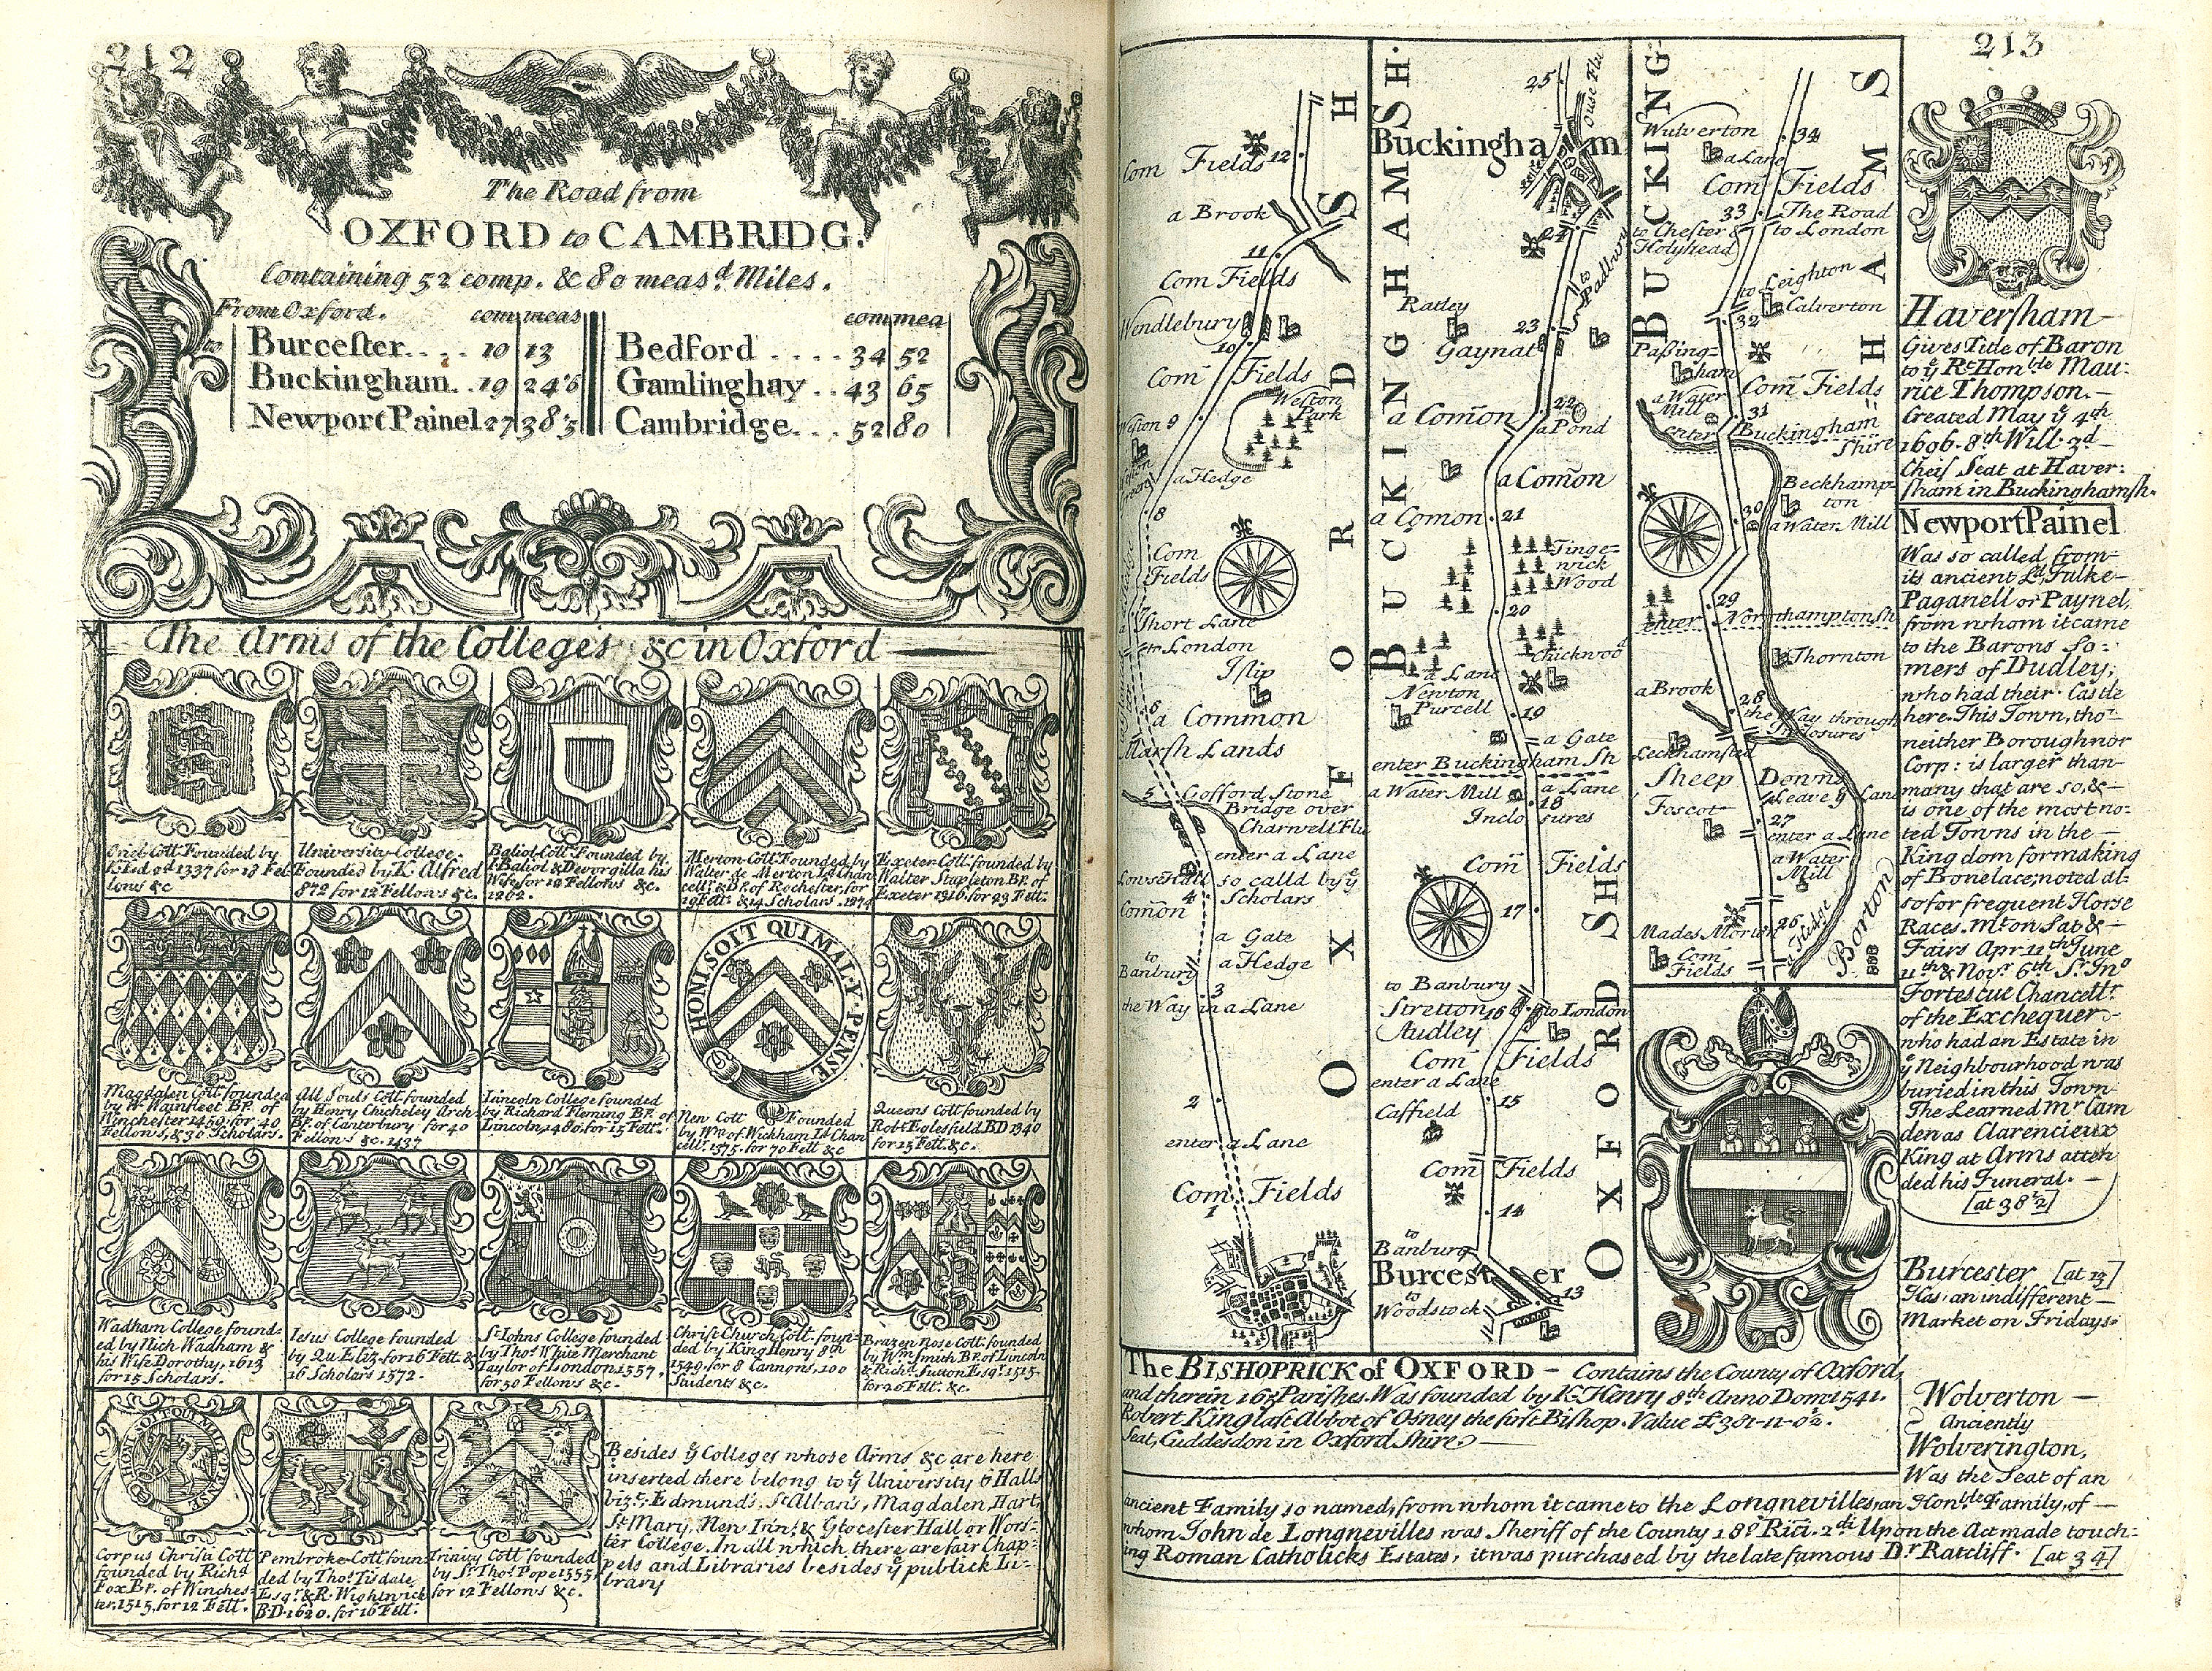 212
The Road from
OXFORD to CAMBRIDG.
Containing 52 comp. & 80 meas.d Miles.
From Oxford. com meas com mea
to Burcester.... 10 13 Bedford .... 34 52
Buckingham.. 19 24'6 Gamlinghay .. 43 65
Newport Painel 27 38'5 Cambridge... 52 80
The Arms of the Colleges &c in Oxford
Oriel Coll Founded by
K. Ed 2d 1337 for 18 Fel
lows &c
University College.
Founded by K. Alfred
872 for 12 Fellows &c.
Baliol Coll Founded by
I. Baliol & Devorgilla his
Wife for 12 Fellows &c.
1262.
Merton Coll Founded by
Walter de Merton Ld Chan
cellr & BP. of Rochester, for
19 Fells & 14 Scholars. 1274
Exeter Coll. founded by
Walter Stapleton BP. of
Exeter 1316. for 23 Fell.
HONI SOIT QUI MAL Y PENSE
Magdalen Coll founded
by W. Wainfleet BP. of
Winchester 1459. for 40
Fellows, & 30 Scholars.
All Souls Coll. founded
by Henry Chicheley Arch
BP. of Canterbury for 40
Fellows &c. 1437
Lincoln College founded
by Richard Fleming BP. of
Lincoln, 1480. for 15 Fell.
New Coll Founded
by Wm of Wickham Ld Chan
cellr. 1375. for 70 Fell &c
Queens Coll founded by
Robt Eglesfield BD 1340
for 15 Fell. &c.
Wadham College found-
ed by Nich Wadham &
his Wife Dorothy, 1613
for 15 Scholars.
Iesus College founded
by Qu Eliz. for 16 Fell &
16 Scholars 1572.
St Iohns College founded
by Thos White Merchant
Taylor of London 1557.
for 50 Fellows &c.
Christ Church Coll. foun-
ded by King Henry 8th
1549. for 8 Cannons, 100
Students &c.
Brazen Nose Coll. founded
by Wm Smith BP. of Lincoln
& Richd. Sutton Esqr. 1515.
for 20 Fell. &c.
HONI SOIT QUI MAL Y PENSE
Corpus Christi Coll
founded by Richd
Fox BP. of Winches
ter, 1515, for 12 Fell.
Pembroke Coll foun
ded by Thos Tisdale
Esqr. & R. Wightwick
B.D. 1620. for 16 Fell.
Trinity Coll founded
by Sr. Thos Pope 1555
for 12 Fellows &c.
Besides ye Colleges whose Arms &c are here
inserted there belong to ye University 6 Halls
viz. Edmunds, St Albans, Magdalen, Hart,
St Mary, New Inn, & Glocester Hall or Wors-
ter College. In all which there are fair Chap-
pels and Libraries besides ye publick Li-
brary
213
OXFORD SH
Com Fields 12
a Brook
11
Com Fields
Wendlebury
10
Com Fields
Weston Park
Weston 9
a Hedge
8
Com
Fields
7
a Short Lane
to London
Islip
6
a Common
Marsh Lands
5 Gofford Stone
Bridge over
Charwell Flu
enter a Lane
so calld by ye
Scholars
4
Comon
a Gate
to
Banbury
a Hedge
3
the Way in a Lane
2
enter a Lane
Com Fields
1
BUCKINGHAMSH.
25
Ouse Flu
Buckingham
24
to Padbury
Ratley
23
Gaynat
22
a Comon
a Pond
a Comon
a Comon 21
Tinge-
wick
Wood
20
Chickwood
a Lane
Newton
Purcell
19
a Gate
enter Buckingham Sh
a Water Mill
a Lane
18
Inclosures
Com Fields
17
to Banbury
Stretton
Audley
16
to London
Com Fields
enter a Lane
15
Caffield
Com Fields
14
to
Banbury
Burcester
to
Woodstock
13
OXFORD SH
BUCKINGHAMS
Wulverton
34
a Lane
Com Fields
33
The Road
to London
to Chester &
Holyhead
to Leighton
Calverton
32
Passing-
ham
Com Fields
a Water
Mill
31
enter Buckingham
Shire
Beckhamp-
ton
30
a Water Mill
29
enter Northamptonsh
Thornton
a Brook
28
the Way through
Inclosures
Leckhamsted
Sheep Downs
leave ye Lane
Foscot
27
enter a Lane
a Water
Mill
26
Mades Morton
a Hedge
Com
Fields
Borton
Haversham
Gives Title of Baron
to ye Rt Honble Mau-
rice Thompson.
Created May ye 4th
1696. 8th Will. 3d
Cheif Seat at Haver:
sham in Buckinghamsh.
Newport Painel
Was so called from
its ancient Ld Fulke
Paganell or Paynel,
from whom it came
to the Barons So:
mers of Dudley,
who had their Castle
here. This Town, tho'
neither Borough nor
Corp: is larger than
many that are so, &
is one of the most no:
ted Towns in the
Kingdom for making
of Bonelace; noted al-
so for frequent Horse
Races. Mt on Sat &
Fairs Apr 11th June
11th & Novr 6th Sr Jno
Fortescue Chancellr
of the Exchequer
who had an Estate in
ye Neighbourhood was
buried in this Town
The Learned Mr Cam
den as Clarencieux
King at Arms atten
ded his Funeral.
[at 38½]
Burcester [at 13]
Has an indifferent
Market on Fridays.
The BISHOPRICK of OXFORD - Contains the County of Oxford,
and therein Parishes. Was founded by K. Henry 8th Anno Domi 1541.
Robert King last Abbot of Osney the first Bishop. Value £381-11-0½.
Seat, Cuddesdon in Oxford Shire.
Wolverton
Anciently
Wolverington,
Was the Seat of an
ancient Family so named, from whom it came to the Longnevilles, an Honble Family, of
whom John de Longnevilles was Sheriff of the County 18o Rici. 2di Upon the Act made touch-
ing Roman Catholicks Estates, it was purchased by the late famous Dr Ratcliff. [at 34]